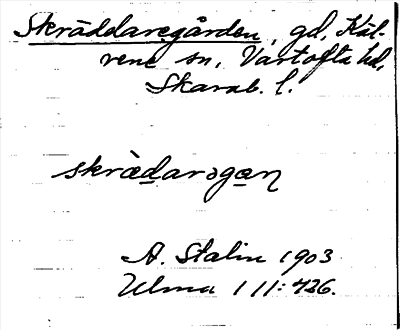 Skräddaregården, gd, Käl-
vene sn, Vartofta hd,
Skarab. l.
skrädarəgan
A. Stalin 1903
Ulma 111:426.